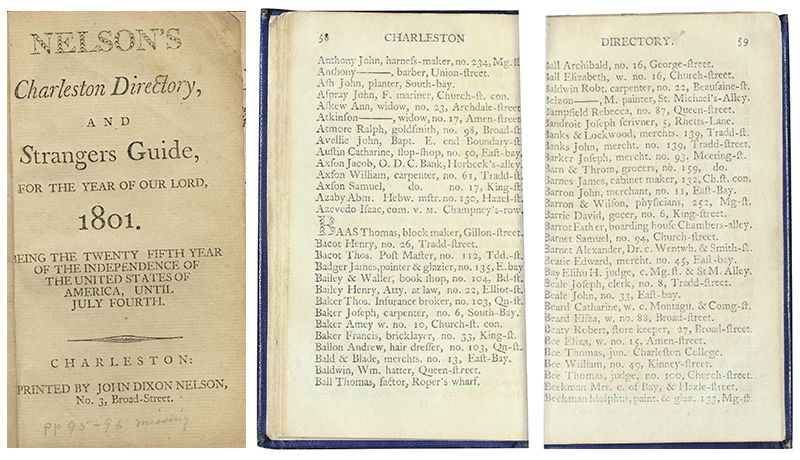 NELSON'S
Charleston Directory,
AND
Strangers Guide,
FOR THE YEAR OF OUR LORD,
1801.
BEING THE TWENTY FIFTH YEAR
OF THE INDEPENDENCE OF
THE UNITED STATES OF
AMERICA, UNTIL
JULY FOURTH.
CHARLESTON:
PRINTED BY JOHN DIXON NELSON,
No. 3, Broad-Street.
pp 95-96 missing
58 CHARLESTON
Anthony John, harneſs-maker, no. 234, Mg. ſt
Anthony ———, barber, Union-ſtreet.
Aſh John, planter, South-bay.
Aſpray John, F. mariner, Church-ſt. con.
Aſkew Ann, widow, no. 23, Archdale-ſtreet
Atkinson ———, widow, no. 17, Amen-ſtreet
Atmore Ralph, goldſmith, no. 98, Broad-ſt
Avellie John, Bapt. E. end Boundary-ſt
Auſtin Catharine, ſlop-ſhop, no. 50, Eaſt-bay
Axſon Jacob, O. D. C. Bank, Horbeck's-alley
Axſon William, carpenter, no. 61, Tradd-ſt
Axſon Samuel, do. no. 17, King-ſt
Azaby Abm. Hebw. mſtr. no. 130, Hazel-ſt
Azevedo Iſaac, com. v. m. Champney's-row
BAAS Thomas, block maker, Gillon-ſtreet.
Bacot Henry, no. 26, Tradd-ſtreet.
Bacot Thos. Poſt Maſter, no. 112, Tdd.-ſt
Badger James, painter & glazier, no. 135, E. bay
Bailey & Waller, book ſhop, no. 104, Bd-ſt
Bailey Henry, Atty. at law, no. 22, Elliot-ſt
Baker Thos. Inſurance broker, no. 103, Qn-ſt
Baker Joſeph, carpenter, no. 6, South-Bay.
Baker Amey w. no. 10, Church-ſt. con.
Baker Francis, bricklayer, no. 33, King-ſt.
Ballon Andrew, hair dreſſer, no. 103, Qn-ſt.
Bald & Blade, merchts. no. 13, Eaſt-Bay.
Baldwin, Wm. hatter, Queen-ſtreet.
Ball Thomas, factor, Roper's wharf.
DIRECTORY. 59
Ball Archibald, no. 16, George-ſtreet.
Ball Elizabeth, w. no. 16, Church-ſtreet.
Baldwin Robt. carpenter, no. 22, Beaufaine-ſt.
Belzon ———, M. painter, St. Michael's-Alley.
Bampfield Rebecca, no. 87, Queen-ſtreet.
Bandroit Joſeph ſcrivner, 5, Rhetts-Lane.
Banks & Lockwood, merchts. 139, Tradd-ſt.
Banks John, mercht. no. 139, Tradd-ſtreet.
Barker Joſeph, mercht. no. 93, Meeting-ſt.
Barn & Throm, grocers, no 159, do.
Barnes James, cabinet maker, 132, Ch.ſt. con.
Barron John, merchant, no. 11, Eaſt-Bay.
Barron & Wilſon, phyſicians, 252, Mg-ſt.
Barrie David, gocer, no. 6, King-ſtreet.
Barrot Eſther, boarding houſe Chambers-alley.
Barnet Samuel, no. 94, Church-ſtreet.
Barnet Alexander, Dr. c. Wentwh. & Smith-ſt.
Beatie Edward, mercht. no. 45, Eaſt-bay.
Bay Elihu H. judge, c. Mg.ſt. & St M. Alley.
Beale Joſeph, clerk, no. 8, Tradd-ſtreet.
Beale John, no. 33, Eaſt-bay.
Beard Catharine, w. c. Montagu. & Comg-ſt.
Beard Eliza, w. no. 88, Broad-ſtreet.
Beaty Robert, ſtore keeper, 27, Broad-ſtreet.
Bee Eliza, w. no. 15, Amen-ſtreet.
Bee Thomas, jun. Charleſton College.
Bee William, no. 49, Kinney-ſtreet.
Bee Thomas, judge, no. 100, Church-ſtreet.
Beekman Mrs. c. of Bay, & Hazle-ſtreet.
Beekman Idolphus, paint. & glaz. 133, Mg-ſt.